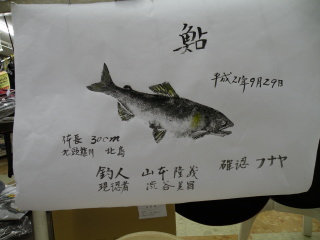 鮎
平成21年9月29日
体長 30cm
北島
釣人 山本 隆義
現認者 渋谷美羅
確認 フナヤ